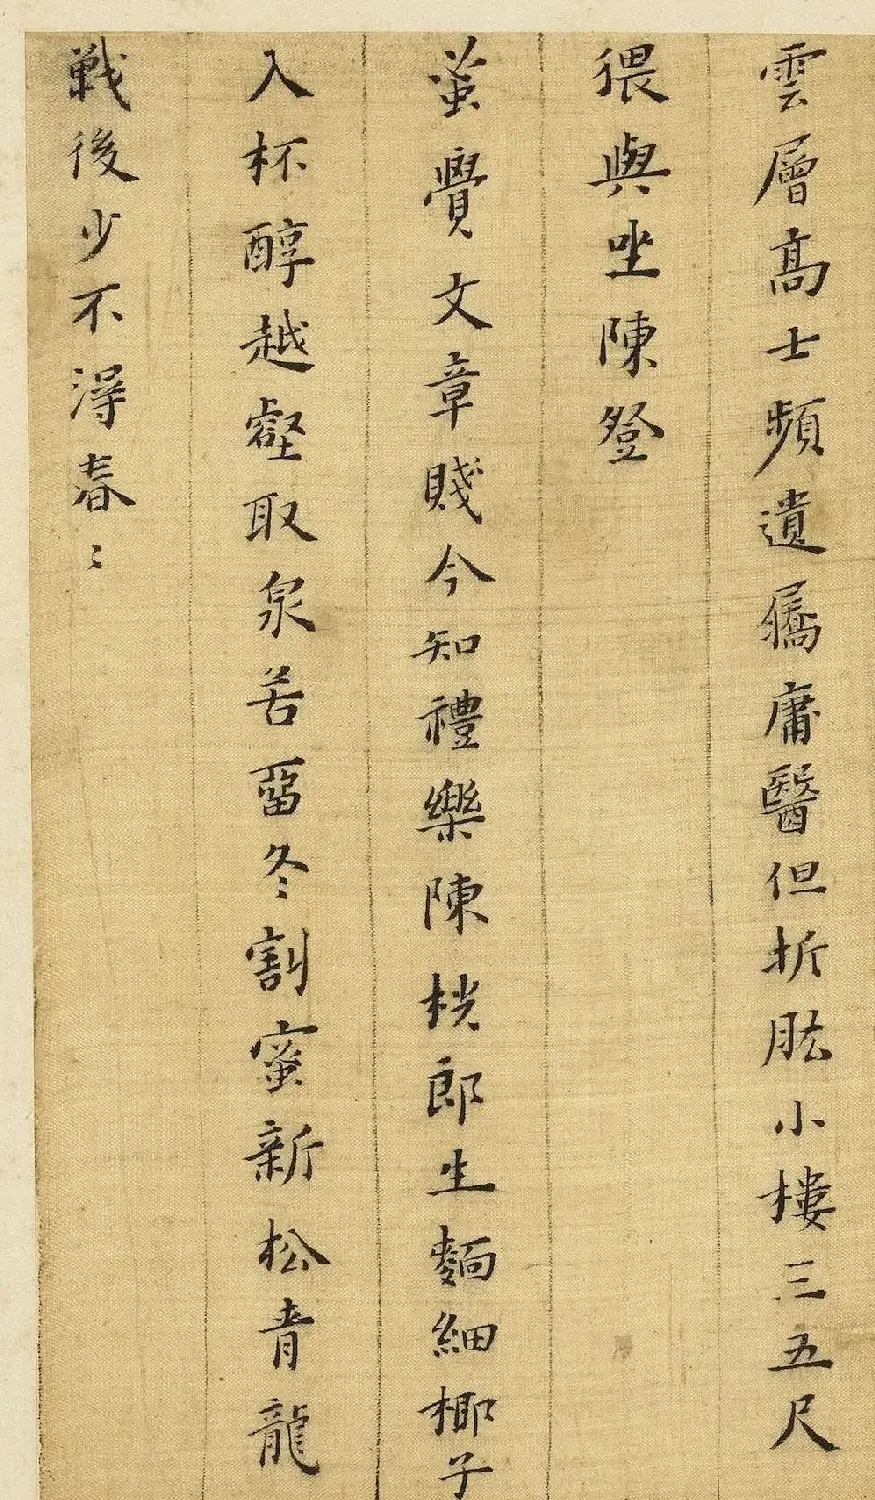 雲層高士頻遺屩庸醫但折肱小樓三五尺
猥與坐陳登
蚤覺文章賤今知禮樂陳桄郎生麵細椰子
入杯醇越壑取泉苦畱冬〻割蜜新松青龍
戰後少不得春〻